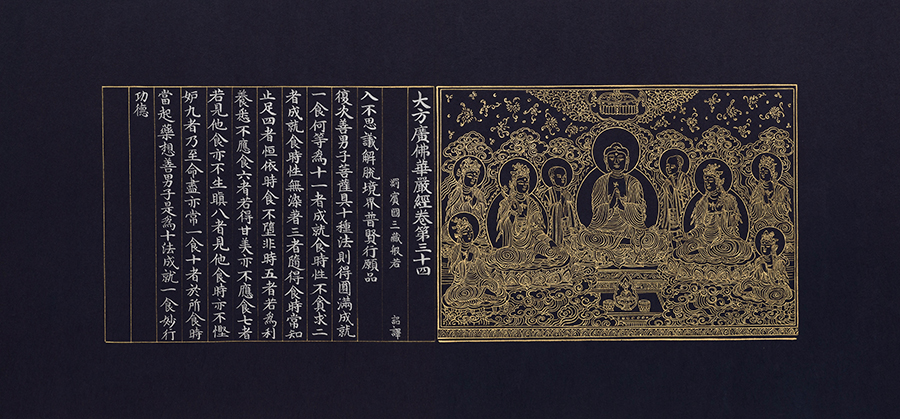 大方廣佛華嚴經卷第三十四
罽賓國三藏般若 詔譯
入不思議解脫境界普賢行願品
復次善男子菩薩具十種法則得圓滿成就
一食何等爲十一者成就食時性不貪求二
者成就食時性無染著三者隨得食時常知
止足四者恒依時食不墮非時五者若爲利
養悉不應食六者若得甘美亦不應食七者
若見他食亦不生瞋八者見他食時亦不慳
妒九者乃至命盡亦常一食十者於所食時
當起藥想善男子是爲十法成就一食妙行
功德